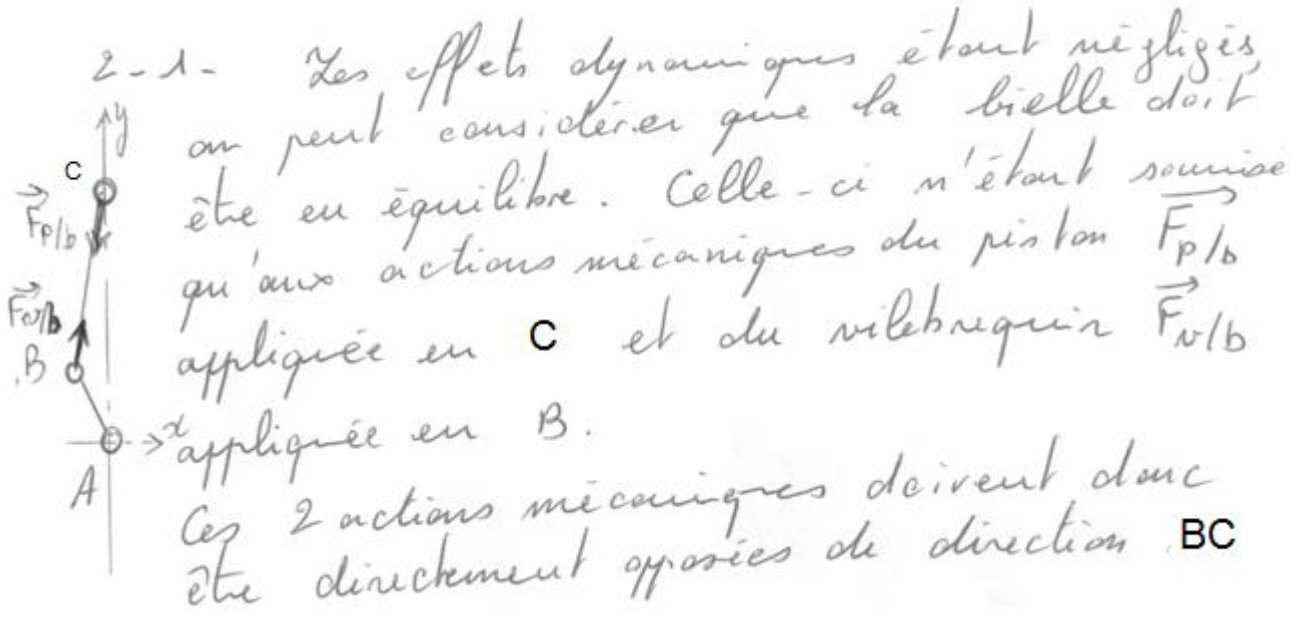 2-1- Les effets dynamiques étant négligés,
on peut considérer que la bielle doit
être en équilibre. Celle-ci n'étant soumise
qu'aux actions mécaniques du piston F p/b
appliquée en C et du vilebrequin F v/b
appliquée en B.
Ces 2 actions mécaniques doivent donc
être directement opposées de direction BC
y
C
F p/b
F v/b
B
x
A